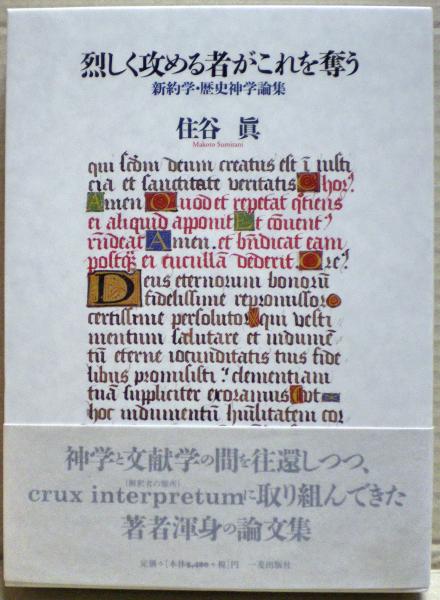 烈しく攻める者がこれを奪う
新約学・歴史神学論集
住谷 眞
Makoto Sumitani
qui scdm deum creatus est ī iusti
cia et sanctitate veritatis Chor᷒
Amen Quod et repetat qtiens
ei aliquid apponit Et cōuent᷒
rūdeat Amen. et bndicat eam
postq̄ ei cuculla dederit. Ore᷒
Deus eternorum bonorū
fidelissime repromissor
certissime persolutor qui vesti
mentum salutare et indumē
tū eterne iocunditatis tuis fide
libus promisisti ? clementiam
tuā suppliciter exoramus ut
hoc indumentū humilitatem cor
神学と文献学の間を往還しつつ、
(解釈者の難所)
crux interpretumに取り組んできた
著者渾身の論文集
定価=[本体5,400+税]円 一麦出版社